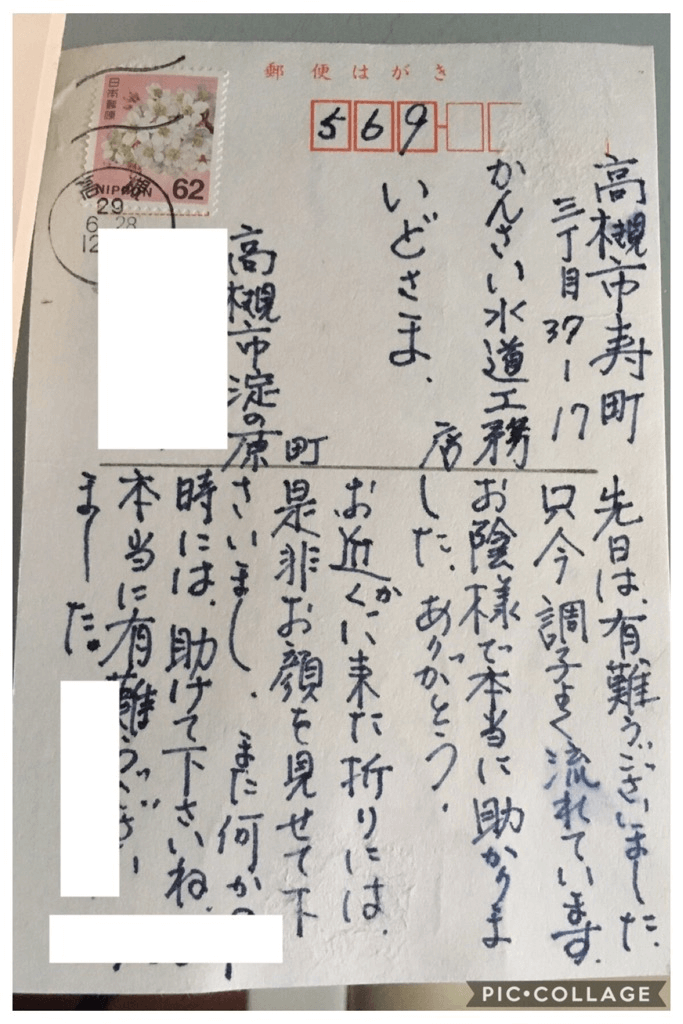 郵便はがき
569
日本郵便
NIPPON 62
29
6 28
12
高槻市寿町
三丁目37-17
かんさい水道工務店
いどさま、
高槻市淀の原町
先日は、有難うございました。
只今調子よく流れています。
お陰様で本当に助かりま
した、ありがとう、
お近くに来た折りには、
是非お顔を見せて下
さいまし、また何かの
時には、助けて下さいね、
本当に有難うござい
ました。
PIC•COLLAGE